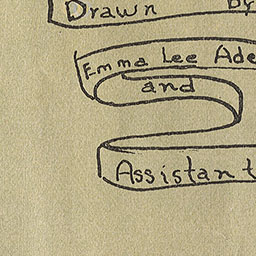 Drawn by
Emma Lee Ade
and
Assistant